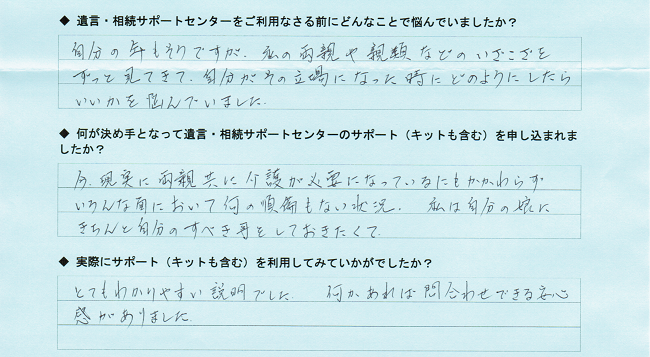 ◆ 遺言・相続サポートセンターをご利用なさる前にどんなことで悩んでいましたか？
自分の年もそうですが、私の両親や親類などのいざこざを
ずっと見てきて、自分がその立場になった時にどのようにしたら
いいかを悩んでいました。
◆ 何が決め手となって遺言・相続サポートセンターのサポート（キットも含む）を申し込まれま
したか？
今、現実に両親共に介護が必要になっているにもかかわらず
いろんな面において何の準備もない状況、 私は自分の娘に
きちんと自分のすべき事をしておきたくて
◆ 実際にサポート（キットも含む）を利用してみていかがでしたか？
とてもわかりやすい説明でした 何かあれば問合わせできる安心
感がありました